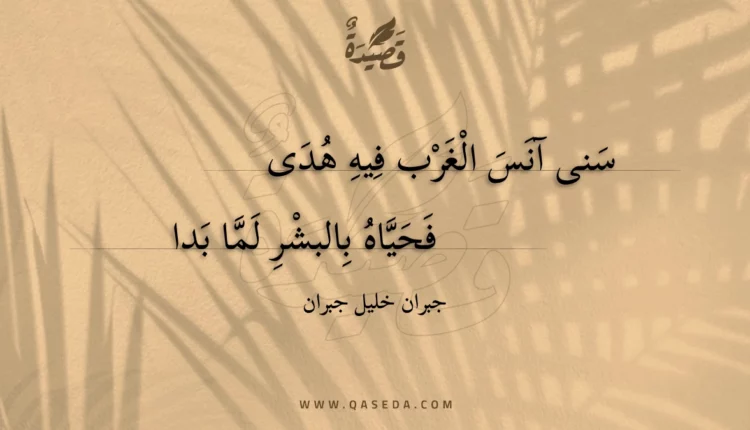 قَصِيْدَةٌ
سَنى آنَسَ الْغَرْب فِيهِ هُدَى
فَحَيَّاهُ بِالبشْرِ لَمَّا بَدا
جبران خليل جبران
WWW.QASEDA.COM